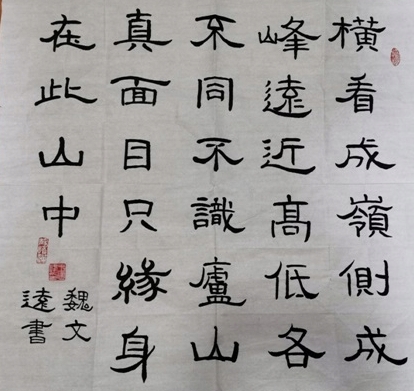 橫看成嶺側成
峰遠近髙低各
不同不識廬山
真面目只緣身
在此山中
魏文
遠書